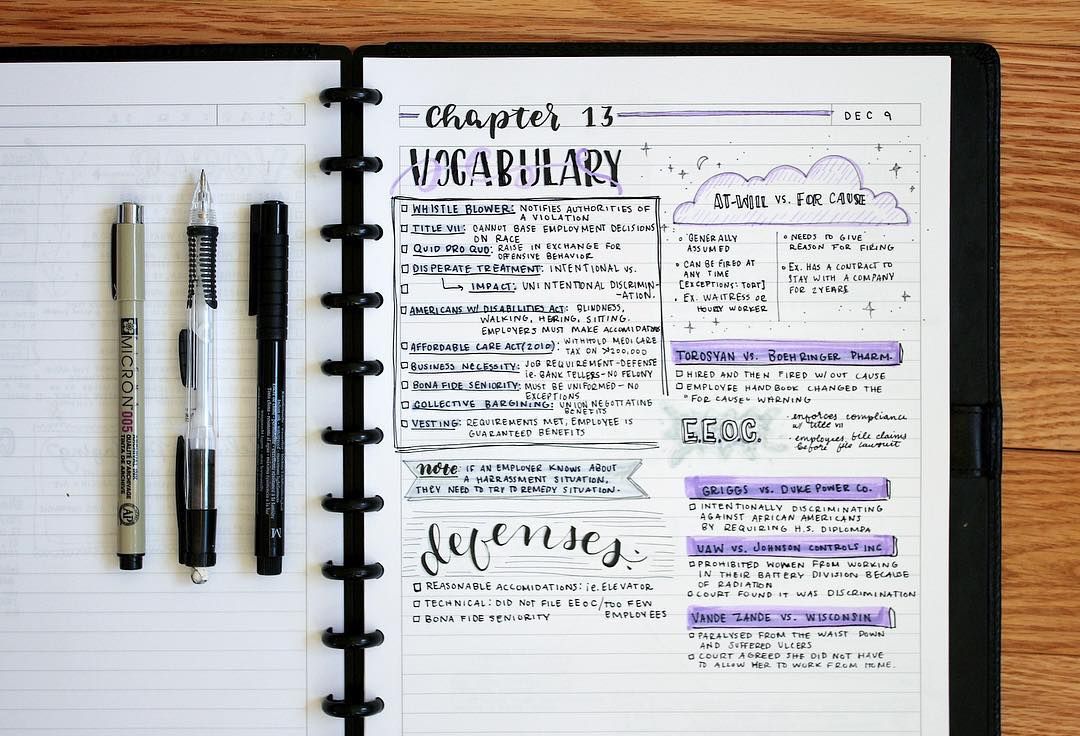 Chapter 13
DEC 9
VOCABULARY
WHISTLE BLOWER: NOTIFIES AUTHORITIES OF
A VIOLATION
TITLE VII: CANNOT BASE EMPLOYMENT DECISIONS
ON RACE
QUID PRO QUO: RAISE IN EXCHANGE FOR
OFFENSIVE BEHAVIOR
DISPERATE TREATMENT: INTENTIONAL VS.
IMPACT: UNINTENTIONAL DISCRIMIN-
-ATION.
AMERICANS W/ DISABILITIES ACT: BLINDNESS,
WALKING, HERING, SITTING.
EMPLOYERS MUST MAKE ACCOMIDATIONS
AFFORDABLE CARE ACT (2010): WITHHOLD MEDICARE
TAX ON >200,000
BUSINESS NECESSITY: JOB REQUIREMENT-DEFENSE
ie. BANK TELLERS-NO FELONY
BONA FIDE SENIORITY: MUST BE UNIFORMED - NO
EXCEPTIONS
COLLECTIVE BARGINING: UNION NEGOTIATING
BENEFITS
VESTING: REQUIREMENTS MET, EMPLOYEE IS
GUARANTEED BENEFITS
note: IF AN EMPLOYER KNOWS ABOUT
A HARRASSMENT SITUATION,
THEY NEED TO TRY TO REMEDY SITUATION.
defenses:
REASONABLE ACCOMIDATIONS: i.e. ELEVATOR
TECHNICAL: DID NOT FILE EEOC/TOO FEW
EMPLOYEES
BONA FIDE SENIORITY
AT-WILL VS. FOR CAUSE
GENERALLY
ASSUMED
CAN BE FIRED AT
ANY TIME
[EXCEPTIONS: TORT]
EX. WAITRESS OR
HOURLY WORKER
NEEDS TO GIVE
REASON FOR FIRING
EX. HAS A CONTRACT TO
STAY WITH A COMPANY
FOR 2 YEARS
TOROSYAN VS. BOEHRINGER PHARM.
HIRED AND THEN FIRED W/OUT CAUSE
EMPLOYEE HANDBOOK CHANGED THE
"FOR CAUSE" WARNING
E.E.O.C.
enforces compliance
w/ title VII
employees file claims
before file lawsuit
GRIGGS VS. DUKE POWER CO.
INTENTIONALLY DISCRIMINATING
AGAINST AFRICAN AMERICANS
BY REQUIRING H.S. DIPLOMDA
UAW VS. JOHNSON CONTROLS INC
PROHIBITED WOMEN FROM WORKING
IN THEIR BATTERY DIVISION BECAUSE
OF RADIATION
COURT FOUND IT WAS DISCRIMINATION
VANDE ZANDE VS. WISCONSIN
PARALYSED FROM THE WAIST DOWN
AND SUFFERED ULCERS
COURT AGREED SHE DID NOT HAVE
TO ALLOW HER TO WORK FROM HOME.
MICRON 005
ARCHIVAL INK
QUALITÉ D'ARCHIVAGE
TINTA DE ARCHIVE
AP
M